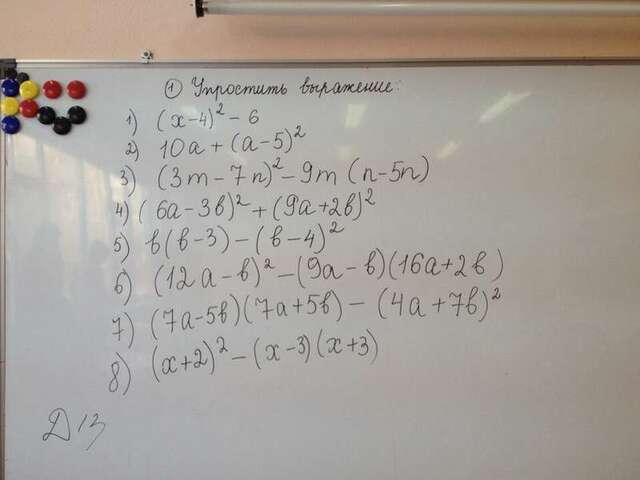 ① Упростить выражение:
1) (x-4)² - 6
2) 10a + (a-5)²
3) (3m - 7n)² - 9m (n-5n)
4) (6a-3b)² + (9a+2b)²
5) b(b-3) - (b-4)²
6) (12a-b)² - (9a-b)(16a+2b)
7) (7a-5b)(7a+5b) - (4a+7b)²
8) (x+2)² - (x-3)(x+3)
Д/з